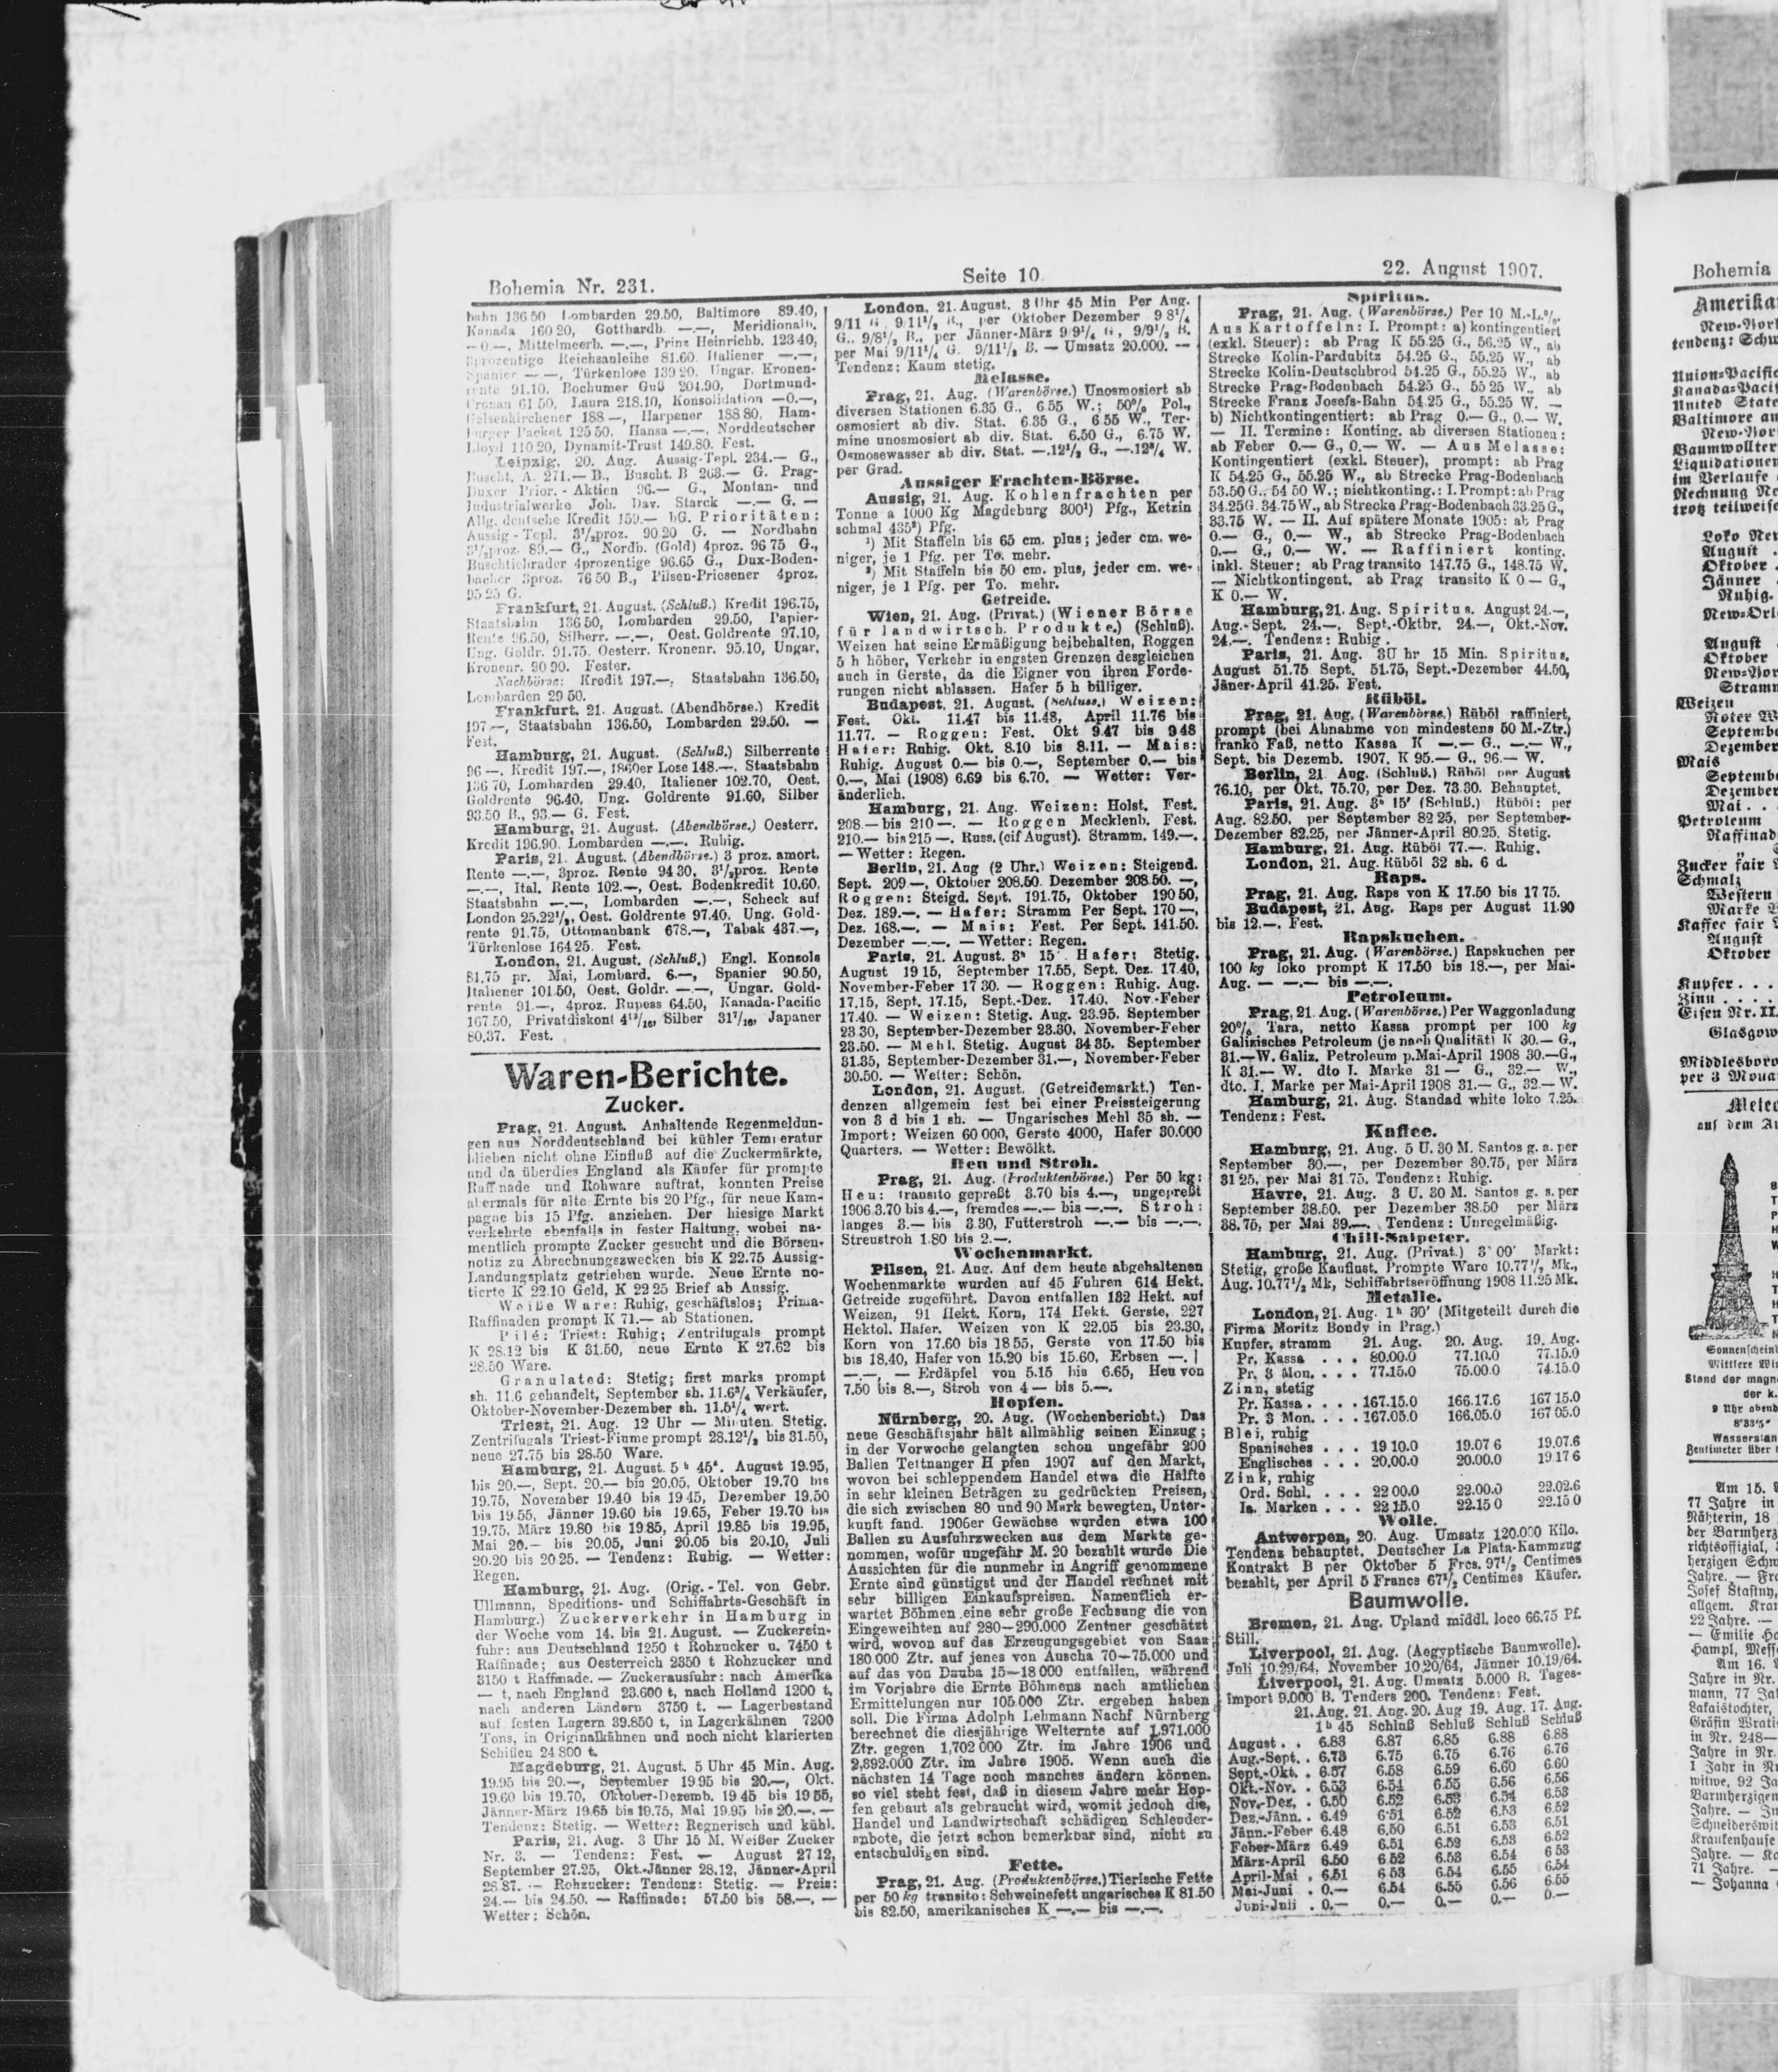 Bohemia Nr. 231.
Seite 10.
22. August 1907.
bahn 136 50 Lombarden 29.50, Baltimore 89.40,
Kanada 160 20, Gotthardb. —.—, Meridionalb.
—0.—, Mittelmeerb. —.—, Prinz Heinrichb. 123 40,
3prozentige Reichsanleihe 81.60. Italiener —.—,
Spanier —.—, Türkenlose 139 20. Ungar. Kronen-
rente 91.10, Bochumer Guß 204.90, Dortmund-
Gronau 61 50, Laura 218.10, Konsolidation —0.—,
Gelsenkirchener 188 —, Harpener 188 80, Ham-
burger Packet 125 50. Hansa —.—. Norddeutscher
Lloyd 110 20, Dynamit-Trust 149.80. Fest.
Leipzig, 20. Aug. Aussig-Tepl. 234.— G.,
Buscht. A. 271.— B., Buscht. B 263.— G. Prag-
Duxer Prior.-Aktien 96.— G., Montan- und
Industrialwerke Joh. Dav. Starck —.— G. —
Allg. deutsche Kredit 159.— bG. Prioritäten:
Aussig-Tepl. 3½proz. 90 20 G. — Nordbahn
3½proz. 89.— G., Nordb. (Gold) 4proz. 96 75 G.,
Buschtiehrader 4prozentige 96.65 G., Dux-Boden-
bacher 3proz. 76 50 B., Pilsen-Priesener 4proz.
95 25 G.
Frankfurt, 21. August. (Schluß.) Kredit 196.75,
Staatsbahn 136 50, Lombarden 29.50, Papier-
Rente 96.50, Silberr. —.—, Oest. Goldrente 97.10,
Ung. Goldr. 91.75. Oesterr. Kronenr. 95.10, Ungar.
Kronenr. 90 90. Fester.
Nachbörse: Kredit 197.—, Staatsbahn 136.50,
Lombarden 29 50.
Frankfurt. 21. August. (Abendbörse.) Kredit
197—, Staatsbahn 136.50, Lombarden 29.50. —
Fest.
Hamburg, 21. August. (Schluß.) Silberrente
96 —. Kredit 197.—, 1860er Lose 148.—. Staatsbahn
136 70, Lombarden 29.40, Italiener 102.70, Oest.
Goldrente 96.40, Ung. Goldrente 91.60, Silber
93.50 B., 93.— G. Fest.
Hamburg, 21. August. (Abendbörse.) Oesterr.
Kredit 196.90. Lombarden —.—. Ruhig.
Paris, 21. August. (Abendbörse.) 3 proz. amort.
Rente —.—, 3proz. Rente 94 30, 3½proz. Rente
—.—, Ital. Rente 102.—, Oest. Bodenkredit 10.60,
Staatsbahn —.—, Lombarden —.—, Scheck auf
London 25.22½, Oest. Goldrente 97.40, Ung. Gold-
rente 91.75, Ottomanbank 678.—, Tabak 437.—,
Türkenlose 164 25. Fest.
London, 21. August. (Schluß.) Engl. Konsols
81.75 pr. Mai, Lombard. 6.—, Spanier 90.50,
Italiener 101 50, Oest. Goldr. —.—, Ungar. Gold-
rente 91.—, 4proz. Rupess 64.50, Kanada-Pacific
167.50, Privatdiskont 4 13/16, Silber 31 7/16, Japaner
80.37. Fest.
Waren-Berichte.
Zucker.
Prag, 21. August. Anhaltende Regenmeldun-
gen aus Norddeutschland bei kühler Temperatur
blieben nicht ohne Einfluß auf die Zuckermärkte,
und da überdies England als Käufer für prompte
Raffinade und Rohware auftrat, konnten Preise
abermals für alte Ernte bis 20 Pfg., für neue Kam-
pagne bis 15 Pfg. anziehen. Der hiesige Markt
verkehrte ebenfalls in fester Haltung, wobei na-
mentlich prompte Zucker gesucht und die Börsen-
notiz zu Abrechnungszwecken bis K 22.75 Aussig-
Landungsplatz getrieben wurde. Neue Ernte no-
tierte K 22.10 Geld, K 22 25 Brief ab Aussig.
Weiße Ware: Ruhig, geschäftslos; Prima-
Raffinaden prompt K 71.— ab Stationen.
Pilé: Triest: Ruhig; Zentrifugals prompt
K 28.12 bis K 31.50, neue Ernte K 27.62 bis
28.50 Ware.
Granulated: Stetig; first marks prompt
sh. 11.6 gehandelt, September sh. 11.6¾ Verkäufer,
Oktober-November-Dezember sh. 11.5¼ wert.
Triest, 21. Aug. 12 Uhr — Minuten. Stetig.
Zentrifugals Triest-Fiume prompt 28.12½ bis 31.50,
neue 27.75 bis 28.50 Ware.
Hamburg, 21. August. 5 h 45'. August 19.95,
bis 20.—, Sept. 20.— bis 20.05, Oktober 19.70 bis
19.75, November 19.40 bis 19 45, Dezember 19.50
bis 19.55, Jänner 19.60 bis 19.65, Feber 19.70 bis
19.75, März 19.80 bis 19 85, April 19.85 bis 19.95,
Mai 20.— bis 20.05, Juni 20.05 bis 20.10, Juli
20.20 bis 20 25. — Tendenz: Ruhig. — Wetter:
Regen.
Hamburg, 21. Aug. (Orig.-Tel. von Gebr.
Ullmann, Speditions- und Schiffahrts-Geschäft in
Hamburg.) Zuckerverkehr in Hamburg in
der Woche vom 14. bis 21. August. — Zuckerein-
fuhr: aus Deutschland 1250 t Rohzucker u. 7450 t
Raffinade; aus Oesterreich 2350 t Rohzucker und
3150 t Raffinade. — Zuckerausfuhr: nach Amerika
— t, nach England 23.600 t, nach Holland 1200 t,
nach anderen Ländern 3750 t. — Lagerbestand
auf festen Lagern 39.850 t, in Lagerkähnen 7200
Tons, in Originalkähnen und noch nicht klarierten
Schiffen 24 800 t.
Magdeburg, 21. August. 5 Uhr 45 Min. Aug.
19.95 bis 20.—, September 19 95 bis 20.—, Okt.
19.60 bis 19.70, Oktober-Dezemb. 19 45 bis 19 55,
Jänner-März 19.65 bis 19.75, Mai 19.95 bis 20.—. —
Tendenz: Stetig. — Wetter: Regnerisch und kühl.
Paris, 21. Aug. 3 Uhr 15 M. Weißer Zucker
Nr. 3. — Tendenz: Fest. — August 27 12,
September 27.25, Okt.-Jänner 28.12, Jänner-April
28.87. — Rohzucker: Tendenz: Stetig. — Preis:
24.— bis 24.50. — Raffinade: 57.50 bis 58.—. —
Wetter: Schön.
London, 21. August. 3 Uhr 45 Min Per Aug.
9/11 G. 9/11½ B., per Oktober Dezember 9 8¼
G., 9/8½ B., per Jänner-März 9 9¼ G., 9/9½ B.
per Mai 9/11¼ G. 9/11½ B. — Umsatz 20.000. —
Tendenz: Kaum stetig.
Melasse.
Prag, 21. Aug. (Warenbörse.) Unosmosiert ab
diversen Stationen 6.35 G., 6 55 W.; 50% Pol.,
osmosiert ab div. Stat. 6.35 G., 6 55 W., Ter-
mine unosmosiert ab div. Stat. 6.50 G., 6.75 W.
Osmosewasser ab div. Stat. —.12½ G., —.12¾ W.
per Grad.
Aussiger Frachten-Börse.
Aussig, 21. Aug. Kohlenfrachten per
Tonne a 1000 Kg Magdeburg 300¹) Pfg., Ketzin
schmal 435²) Pfg.
¹) Mit Staffeln bis 65 cm. plus; jeder cm. we-
niger, je 1 Pfg. per To. mehr.
²) Mit Staffeln bis 50 cm. plus, jeder cm. we-
niger, je 1 Pfg. per To. mehr.
Getreide.
Wien, 21. Aug. (Privat.) (Wiener Börse
für landwirtsch. Produkte.) (Schluß).
Weizen hat seine Ermäßigung beibehalten, Roggen
5 h höher, Verkehr in engsten Grenzen desgleichen
auch in Gerste, da die Eigner von ihren Forde-
rungen nicht ablassen. Hafer 5 h billiger.
Budapest, 21. August. (Schluss.) Weizen:
Fest. Okt. 11.47 bis 11.48, April 11.76 bis
11.77. — Roggen: Fest. Okt 9.47 bis 9 48
Hafer: Ruhig. Okt. 8.10 bis 8.11. — Mais:
Ruhig. August 0.— bis 0.—, September 0.— bis
0.—, Mai (1908) 6.69 bis 6.70. — Wetter: Ver-
änderlich.
Hamburg, 21. Aug. Weizen: Holst. Fest.
208.— bis 210—. — Roggen Mecklenb. Fest.
210.— bis 215—. Russ. (cif August). Stramm. 149.—.
— Wetter: Regen.
Berlin, 21. Aug (2 Uhr.) Weizen: Steigend.
Sept. 209.—, Oktober 208.50. Dezember 208 50. —,
Roggen: Steigd. Sept. 191.75, Oktober 190 50,
Dez. 189.—. — Hafer: Stramm Per Sept. 170 —,
Dez. 168.—. — Mais: Fest. Per Sept. 141.50.
Dezember —.—. — Wetter: Regen.
Paris, 21. August. 3h 15'. Hafer: Stetig.
August 19 15, September 17.55, Sept. Dez. 17.40,
November-Feber 17 30. — Roggen: Ruhig. Aug.
17.15, Sept. 17.15, Sept.-Dez. 17.40, Nov.-Feber
17.40. — Weizen: Stetig. Aug. 23.95. September
23 30, September-Dezember 23.30, November-Feber
23.50. — Mehl. Stetig. August 34 35. September
31.35, September-Dezember 31.—, November-Feber
30.50. — Wetter: Schön.
London, 21. August. (Getreidemarkt.) Ten-
denzen allgemein fest bei einer Preissteigerung
von 3 d bis 1 sh. — Ungarisches Mehl 35 sh. —
Import: Weizen 60 000, Gerste 4000, Hafer 30.000
Quarters. — Wetter: Bewölkt.
Heu und Stroh.
Prag, 21. Aug. (Produktenbörse.) Per 50 kg:
Heu: transito gepreßt 3.70 bis 4.—, ungepreßt
1906 3.70 bis 4.—, fremdes —.— bis —.—. Stroh:
langes 3.— bis 3.30, Futterstroh —.— bis —.—.
Streustroh 1.80 bis 2.—.
Wochenmarkt.
Pilsen, 21. Aug. Auf dem heute abgehaltenen
Wochenmarkte wurden auf 45 Fuhren 614 Hekt.
Getreide zugeführt. Davon entfallen 132 Hekt. auf
Weizen, 91 Hekt. Korn, 174 Hekt. Gerste, 227
Hektol. Hafer. Weizen von K 22.05 bis 23.30,
Korn von 17.60 bis 18 55, Gerste von 17.50 bis
bis 18.40, Hafer von 15.20 bis 15.60, Erbsen —.
—.—, — Erdäpfel von 5.15 bis 6.65, Heu von
7.50 bis 8.—, Stroh von 4 — bis 5.—.
Hopfen.
Nürnberg, 20. Aug. (Wochenbericht.) Das
neue Geschäftsjahr hält allmählig seinen Einzug;
in der Vorwoche gelangten schon ungefähr 200
Ballen Tettnanger H pfen 1907 auf den Markt,
wovon bei schleppendem Handel etwa die Hälfte
in sehr kleinen Beträgen zu gedrückten Preisen,
die sich zwischen 80 und 90 Mark bewegten, Unter-
kunft fand. 1906er Gewächse wurden etwa 100
Ballen zu Ausfuhrzwecken aus dem Markte ge-
nommen, wofür ungefähr M. 20 bezahlt wurde Die
Aussichten für die nunmehr in Angriff genommene
Ernte sind günstigst und der Handel rechnet mit
sehr billigen Einkaufspreisen. Namentlich er-
wartet Böhmen eine sehr große Fechsung die von
Eingeweihten auf 280—290.000 Zentner geschätzt
wird, wovon auf das Erzeugungsgebiet von Saaz
180 000 Ztr. auf jenes von Auscha 70—75.000 und
auf das von Dauba 15—18 000 entfallen, während
im Vorjahre die Ernte Böhmens nach amtlichen
Ermittelungen nur 105.000 Ztr. ergeben haben
soll. Die Firma Adolph Lehmann Nachf Nürnberg
berechnet die diesjährige Welternte auf 1,971.000
Ztr. gegen 1,702 000 Ztr. im Jahre 1906 und
2,392.000 Ztr. im Jahre 1905. Wenn auch die
nächsten 14 Tage noch manches ändern können,
so viel steht fest, daß in diesem Jahre mehr Hop-
fen gebaut als gebraucht wird, womit jedoch die,
Handel und Landwirtschaft schädigen Schleuder-
anbote, die jetzt schon bemerkbar sind, nicht zu
entschuldigen sind.
Fette.
Prag, 21. Aug. (Produktenbörse.) Tierische Fette
per 50 kg transito: Schweinefett ungarisches K 81.50
bis 82.50, amerikanisches K —.— bis —.—.
Spiritus.
Prag, 21. Aug. (Warenbörse.) Per 10 M.-L.%.
Aus Kartoffeln: I. Prompt: a) kontingentiert
(exkl. Steuer): ab Prag K 55.25 G., 56.25 W., ab
Strecke Kolin-Pardubitz 54.25 G., 55.25 W., ab
Strecke Kolin-Deutschbrod 54.25 G., 55.25 W., ab
Strecke Prag-Bodenbach 54.25 G., 55 25 W., ab
Strecke Franz Josefs-Bahn 54 25 G., 55.25 W. —
b) Nichtkontingentiert: ab Prag 0.— G., 0.— W.
— II. Termine: Konting. ab diversen Stationen:
ab Feber 0.— G., 0.— W. — Aus Melasse:
Kontingentiert (exkl. Steuer), prompt: ab Prag
K 54.25 G., 55.25 W., ab Strecke Prag-Bodenbach
53.50 G., 54 50 W.; nichtkonting.: I. Prompt: ab Prag
34.25 G. 34.75 W., ab Strecke Prag-Bodenbach 33.25 G.,
33.75 W. — II. Auf spätere Monate 1905: ab Prag
0.— G., 0.— W., ab Strecke Prag-Bodenbach
0.— G., 0.— W. — Raffiniert konting.
inkl. Steuer: ab Prag transito 147.75 G., 148.75 W.
— Nichtkontingent. ab Prag transito K 0 — G.,
K 0.— W.
Hamburg, 21. Aug. Spiritus. August 24.—,
Aug.-Sept. 24.—, Sept.-Oktbr. 24.—, Okt.-Nov.
24.—. Tendenz: Ruhig.
Paris, 21. Aug. 3U hr 15 Min. Spiritus.
August 51.75 Sept. 51.75, Sept.-Dezember 44.50,
Jäner-April 41.25. Fest.
Rüböl.
Prag, 21. Aug. (Warenbörse.) Rüböl raffiniert,
prompt (bei Abnahme von mindestens 50 M.-Ztr.)
franko Faß, netto Kassa K —.— G., —.— W.,
Sept. bis Dezemb. 1907. K 95.— G., 96.— W.
Berlin, 21 Aug. (Schluß.) Rüböl per August
76.10, per Okt. 75.70, per Dez. 73.30. Behauptet.
Paris, 21. Aug. 3h 15' (Schluß.) Rüböl: per
Aug. 82.50, per September 82 25, per September-
Dezember 82.25, per Jänner-April 80.25. Stetig.
Hamburg, 21. Aug. Rüböl 77.—. Ruhig.
London, 21. Aug. Rüböl 32 sh. 6 d.
Raps.
Prag, 21. Aug. Raps von K 17.50 bis 17 75.
Budapest, 21. Aug. Raps per August 11.90
bis 12.—. Fest.
Rapskuchen.
Prag, 21. Aug. (Warenbörse.) Rapskuchen per
100 kg loko prompt K 17.50 bis 18.—, per Mai-
Aug. — —.— bis —.—.
Petroleum.
Prag, 21. Aug. (Warenbörse.) Per Waggonladung
20% Tara, netto Kassa prompt per 100 kg
Galizisches Petroleum (je nach Qualität) K 30.— G.,
31.—W. Galiz. Petroleum p.Mai-April 1908 30.—G.,
K 31.— W. dto I. Marke 31 — G., 32.— W.,
dto. I. Marke per Mai-April 1908 31.— G., 32.— W.
Hamburg, 21. Aug. Standad white loko 7.25.
Tendenz: Fest.
Kaffee.
Hamburg, 21. Aug. 5 U. 30 M. Santos g. a. per
September 30.—, per Dezember 30.75, per März
31 25, per Mai 31.75. Tendenz: Ruhig.
Havre, 21. Aug. 3 U. 30 M. Santos g. s. per
September 38.50. per Dezember 38.50 per März
38.75, per Mai 39.—. Tendenz: Unregelmäßig.
Chili-Salpeter.
Hamburg, 21. Aug. (Privat.) 3' 00' Markt:
Stetig, große Kauflust. Prompte Ware 10.77½ Mk.,
Aug. 10.77½ Mk, Schiffahrtseröffnung 1908 11.25 Mk.
Metalle.
London, 21. Aug. 1h 30' (Mitgeteilt durch die
Firma Moritz Bondy in Prag.)
Kupfer, stramm 21. Aug. 20. Aug. 19. Aug.
Pr. Kassa . . . 80.00.0 77.10.0 77.15.0
Pr. 3 Mon. . . . 77.15.0 75.00.0 74.15.0
Zinn, stetig
Pr. Kassa . . . . 167.15.0 166.17.6 167 15.0
Pr. 3 Mon. . . . 167.05.0 166.05.0 167 05.0
Blei, ruhig
Spanisches . . . 19 10.0 19.07 6 19.07.6
Englisches . . . 20.00.0 20.00.0 19 17 6
Zink, ruhig
Ord. Schl. . . . 22 00.0 22.00.0 22.02.6
Ia. Marken . . . 22 15.0 22.15 0 22.15 0
Wolle.
Antwerpen, 20. Aug. Umsatz 120.000 Kilo.
Tendenz behauptet. Deutscher La Plata-Kammzug
Kontrakt B per Oktober 5 Frcs. 97½ Centimes
bezahlt, per April 5 Francs 67½ Centimes Käufer.
Baumwolle.
Bremen, 21. Aug. Upland middl. loco 66.75 Pf.
Still.
Liverpool, 21. Aug. (Aegyptische Baumwolle).
Juli 10.29/64, November 10.20/64, Jänner 10.19/64.
Liverpool, 21. Aug. Umsatz 5.000 B. Tages-
Import 9.000 B. Tenders 200. Tendenz: Fest.
21. Aug. 21. Aug. 20. Aug 19. Aug. 17. Aug.
1h 45 Schluß Schluß Schluß Schluß
August . . 6.83 6.87 6.85 6.88 6.88
Aug.-Sept. . 6.73 6.75 6.75 6.76 6.76
Sept.-Okt. . 6.57 6.58 6.59 6.60 6.60
Okt.-Nov. . 6.53 6.54 6.55 6.56 6.56
Nov.-Dez. . 6.50 6.52 6.53 6.54 6.53
Dez.-Jänn. . 6.49 6.51 6.52 6.53 6.52
Jänn.-Feber 6.48 6.50 6.51 6.53 6.51
Feber-März 6.49 6.51 6.52 6.53 6.52
März-April 6.50 6 52 6.53 6.54 6 53
April-Mai . 6.51 6 53 6.54 6.55 6.54
Mai-Juni . 0.— 6.54 6.55 6.56 6.55
Juni-Juli . 0.— 0.— 0.— 0.— 0.—
Bohemia
New-York
tendenz:
Union-Pacific
United State
Baltimore
Liquidationen
im Verlaufe
August .
Oktober .
Jänner
Ruhig.
August
Oktober
Weizen
Roter
Dezember
Mais
Dezember
Mai . .
Petroleum
Zucker fair
Schmalz
Western
Marke
Kaffee fair
August
Oktober
Kupfer . . .
Zinn . . . .
Eisen Nr. II.
Glasgow
per 3
auf dem
der k.
9 Uhr
8°33'5"
Am 15.
77 Jahre in
Nähterin, 18
Josef
22 Jahre. —
— Emilie
Am 16.
Jahre in Nr.
in Nr. 248—
Jahre in Nr.
1 Jahr in
witwe, 92
71 Jahre. —
— Johanna